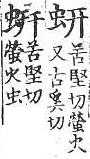 蚈
苦堅切螢火
又古奚切
蚈
苦堅切
螢火虫